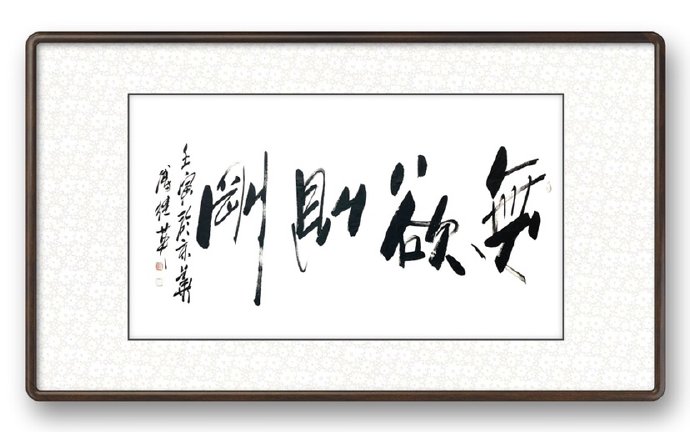 無欲則剛
壬寅於京華